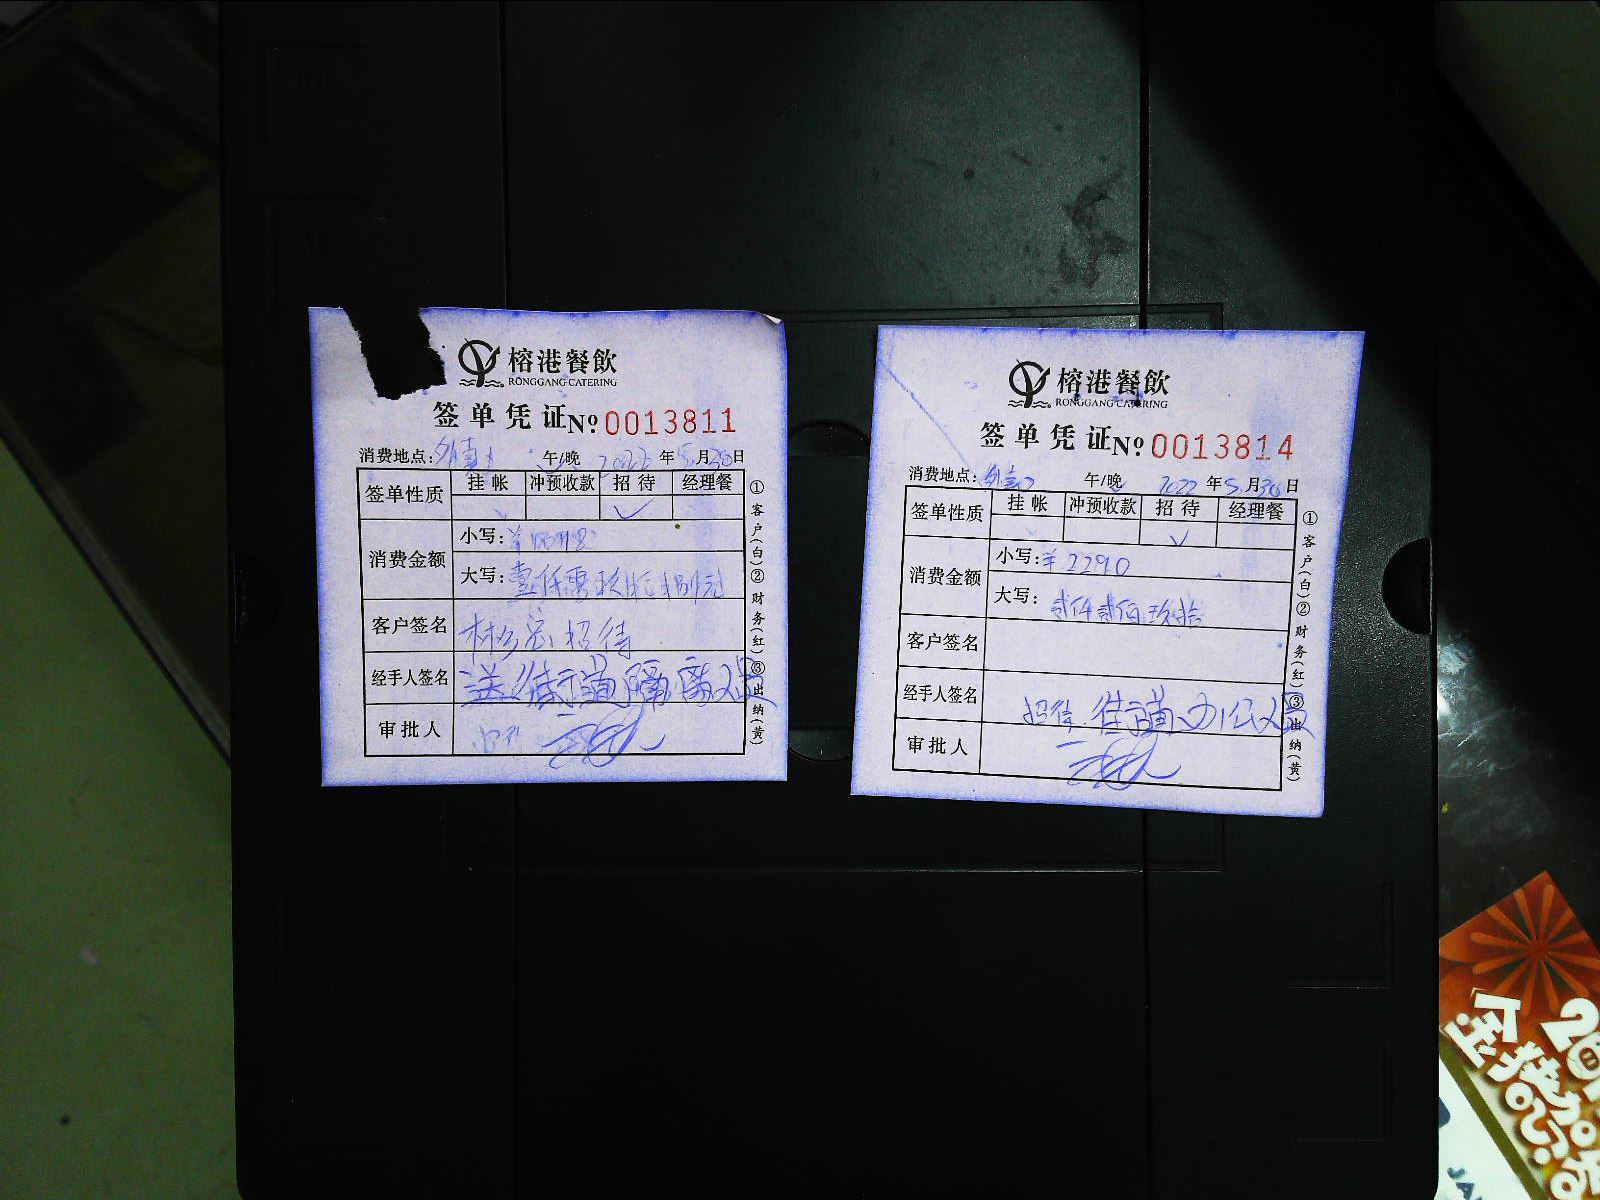 榕港餐飲
RONGGANG CATERING
签单凭证 № 0013811
消费地点: 午/晚 2022 年 5 月 30 日
签单性质 挂帐 冲预收款 招待 经理餐
消费金额 小写: ¥
大写: 壹仟零玖拾捌元
客户签名 招待
经手人签名 送 街道隔离
审批人
①客户(白)②财务(红)③出纳(黄)
榕港餐飲
RONGGANG CATERING
签单凭证 № 0013814
消费地点: 午/晚 2022 年 5 月 30 日
签单性质 挂帐 冲预收款 招待 经理餐
消费金额 小写: ¥2290
大写: 贰仟贰佰玖拾
客户签名
经手人签名 招待 街道办公
审批人
①客户(白)②财务(红)③出纳(黄)
金猪